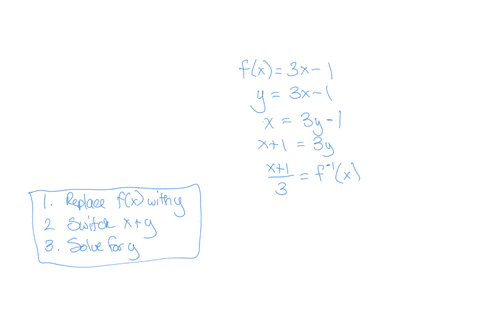 f(x) = 3x - 1
y = 3x - 1
x = 3y - 1
x + 1 = 3y
x+1/3 = f⁻¹(x)
1. Replace f(x) with y
2 Switch x + y
3. Solve for y